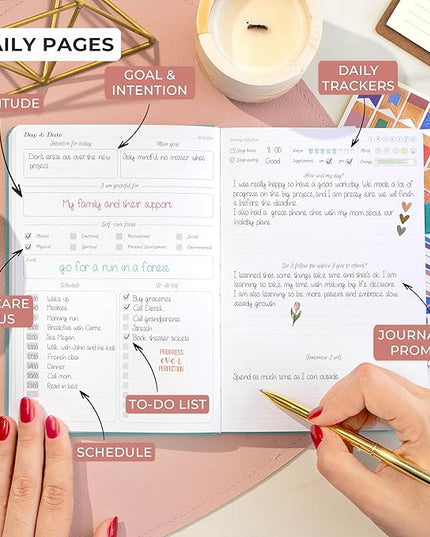 AILY PAGES
GOAL &
INTENTION
DAILY
TRACKERS
ITUDE
Day & Date
Intension for today
Main goal
Don't stress out over the new
project
Stay mindful no matter what
I am grateful for
My family and their support
Self-care focus
Mental
Emotional
Recreational
Social
Physical
Spiritual
Personal Development
Environmental
I will
go for a run in a forest
CARE
US
Schedule
To-do list
Wake up
Meditate
Morning run
Breakfast with Carrie
See Megan
Walk with John and his kids
French class
Dinner
Call mom
Read in bed
Buy groceries
Call Derek
Call grandparents
Stretch
Book theater tickets
PROGRESS
over
PERFECTION
TO-DO LIST
SCHEDULE
Sleep hours
8:00
Water
Sleep quality
Good
Supplements
Mood
Energy
How was my day?
I was really happy to have a good workday. We made a lot of
progress on the big project, and I am pretty sure we will finish
it before the deadline.
I also had a great phone chat with my mom about our
holiday plans
Do I follow the advice I give to others?
I learned that some things take time and that's ok. I am
learning to take my time with making big life decisions.
I am also learning to be more patient and embrace slow,
steady growth.
JOURNA
PROM
Tomorrow I will
Spend as much time as I can outside.